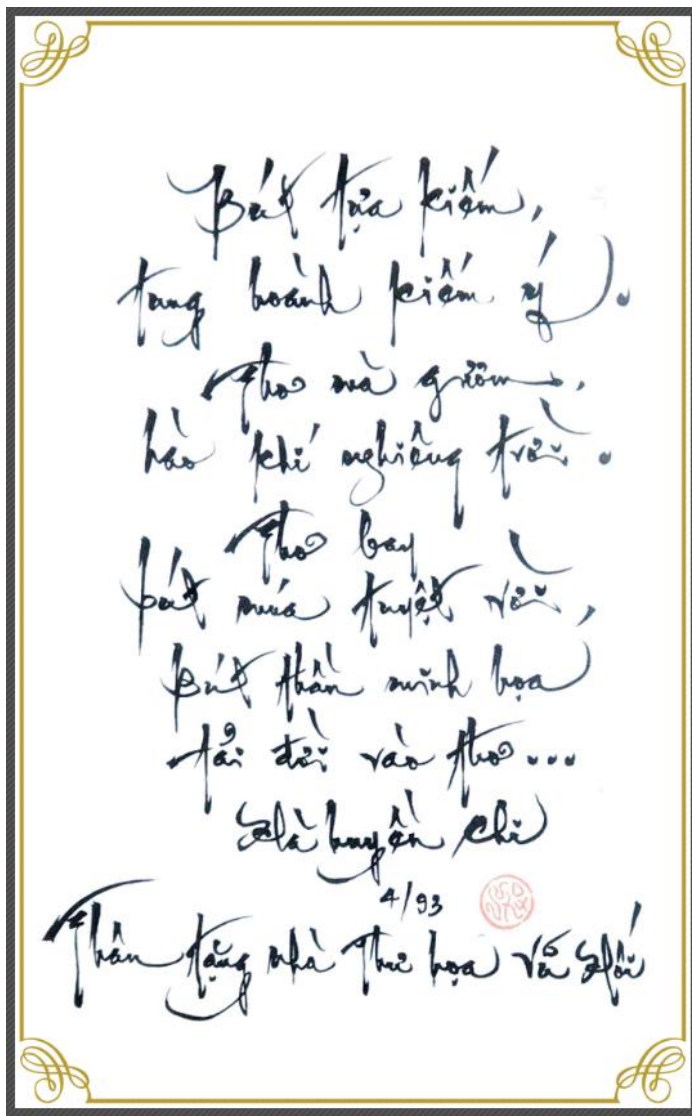 Bút tựa kiếm,
tung hoành kiếm ý.
Thơ mà gươm,
hào khí nghiêng trời.
Thơ bay
bút múa tuyệt vời,
Bút thần minh họa
tải đời vào thơ...
Hà huyền chi
4/93
Thân tặng nhà Thư họa Vũ Hối